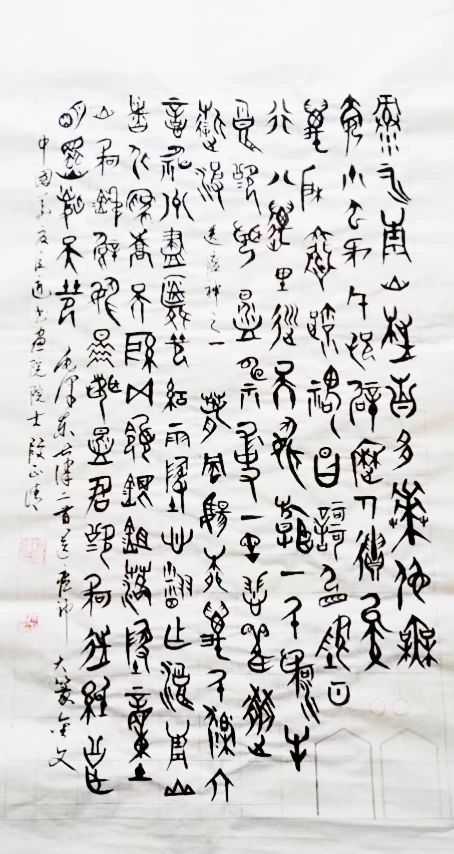 綠水青山枉自多華佗無
奈小虫何千村薜荔人遺矢
萬户蕭疏鬼唱歌坐地日
行八萬里巡天遥看一千河牛
郎欲問瘟神事一樣悲歡逐
逝波 送瘟神之一 春風楊柳萬千條六
億神州盡舜堯紅雨隨心翻作浪青山
着意化為橋天連五嶺銀鋤落地動
三河鐵臂搖借問瘟君欲何往紙船
明燭照天燒 毛澤東七律二首送瘟神 大篆金文
中國書畫院院士段正